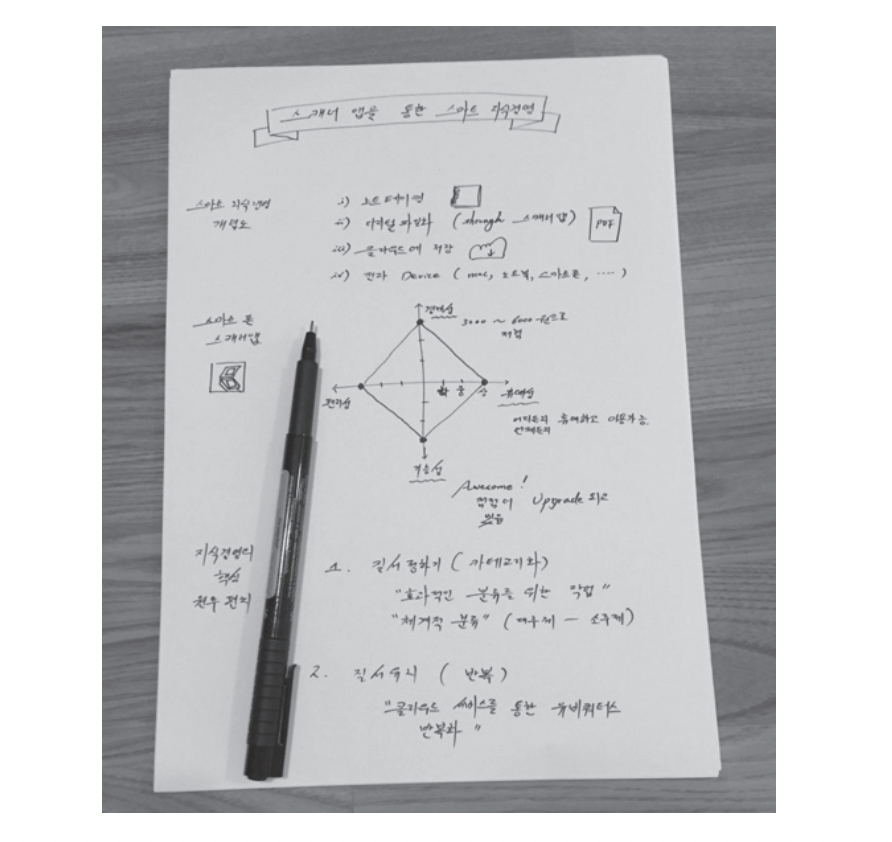 스캐너 앱을 통한 스마트 지식경영
스마트 지식경영
개념도
i) 노트 테이킹
ii) 디지털 파일화 (through 스캐너 앱)
PDF
iii) 클라우드에 저장
iv) 전자 Device ( mac, 노트북, 스마트폰, ‥‥ )
스마트 폰
스캐너 앱
경제성
3000 ~ 6000원으로
저렴
편리성
하 중 상
휴대성
어디든지 휴대하고 이용가능.
언제든지
기능성
Awesome !
점점 더 Upgrade 되고
있음
지식경영의
핵심
1. 질서 정하기 ( 카테고리화)
"효과적인 분류를 위한 작업"
"체계적 분류" (대주제 — 소주제)
2. 질서유지 ( 반복 )
"클라우드 써비스를 통한 유비쿼터스
반복화 "